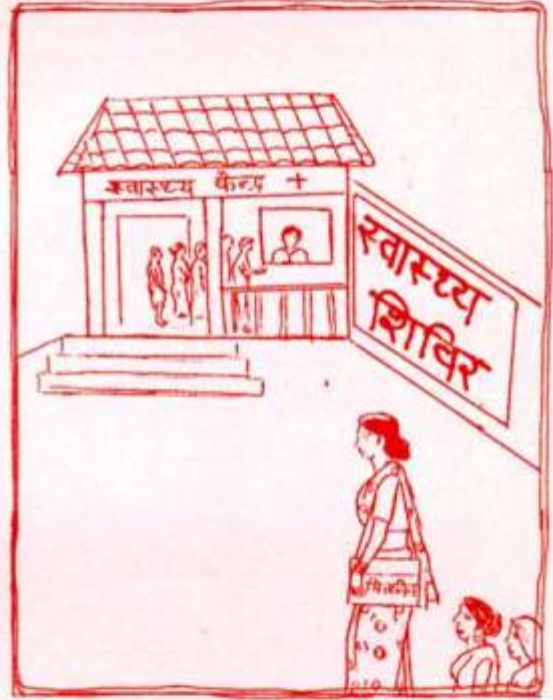 स्वास्थ्य केन्द्र +
स्वास्थ्य
शिविर